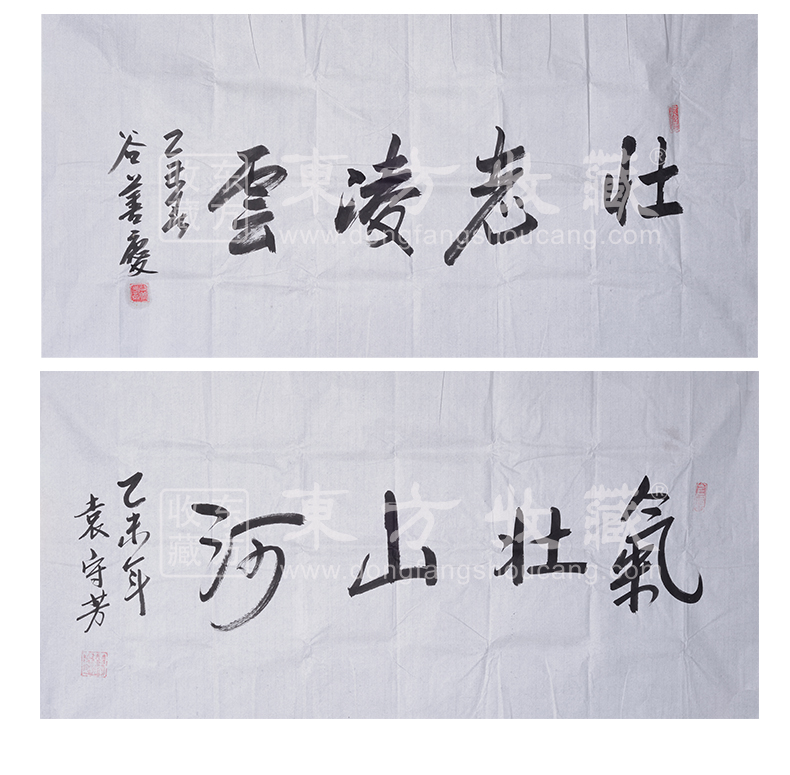 壯志凌雲
乙未春
谷善慶
东方收藏
東方收藏®
www.dongfangshoucang.com
氣壯山河
乙未年
袁守芳
东方收藏
東方收藏®
www.dongfangshoucang.com